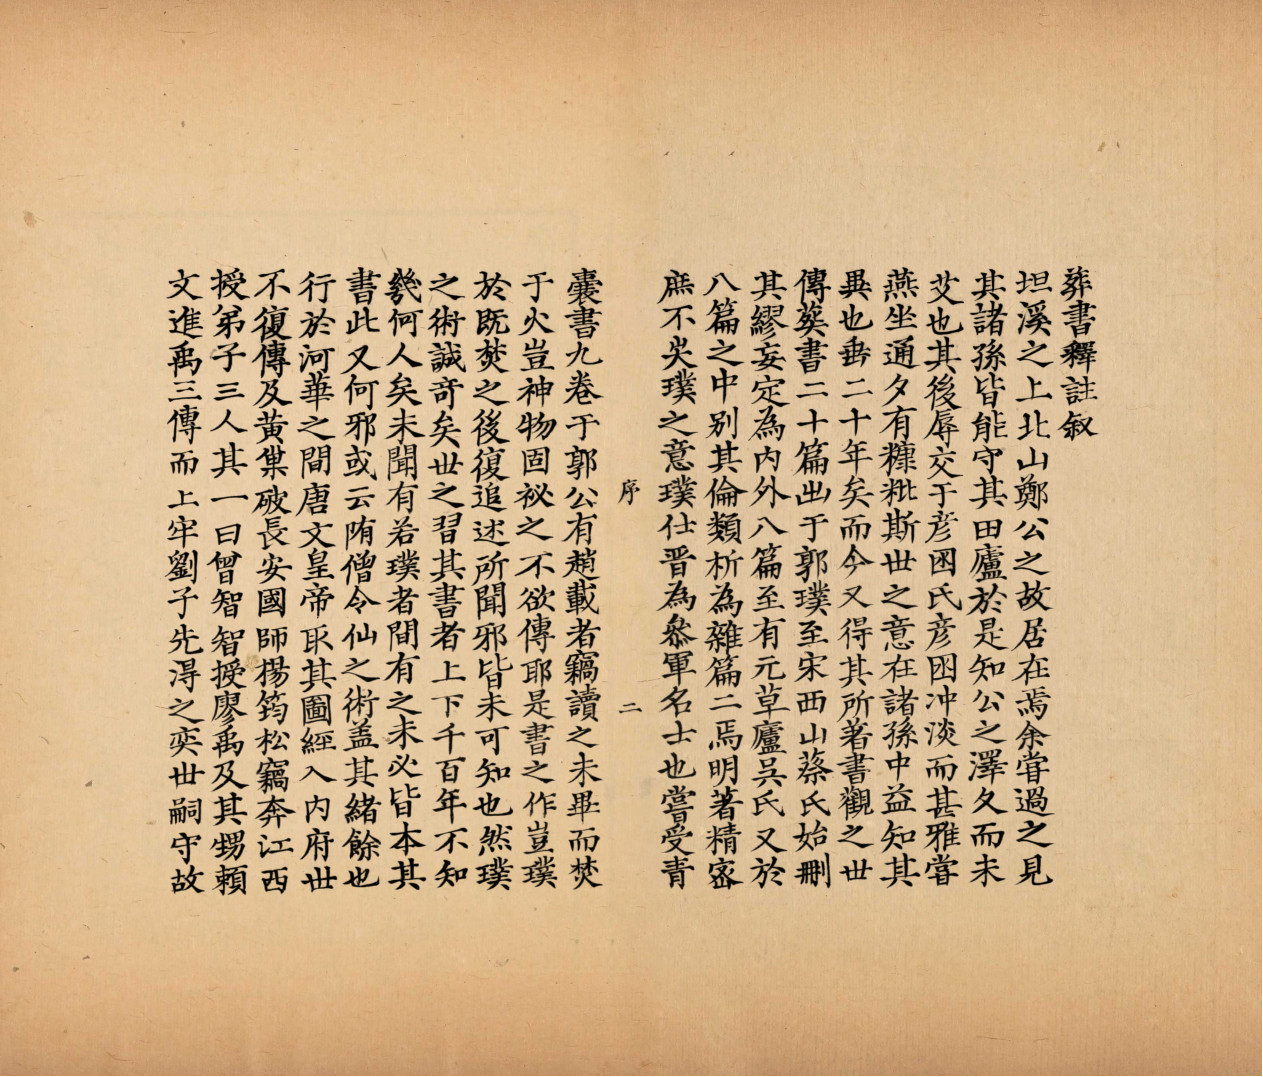 葬書釋註叙
坦溪之上北山鄭公之故居在焉余嘗過之見
其諸孫皆能守其田廬於是知公之澤久而未
艾也其後辱交于彦困氏彦困冲淡而甚雅嘗
燕坐通夕有糠粃斯世之意在諸孫中益知其
異也垂二十年矣而今又得其所著書觀之世
傳葬書二十篇出于郭璞至宋西山蔡氏始刪
其繆妄定為内外八篇至有元草廬吳氏又於
八篇之中别其倫類析為雜篇二焉明著精密
庶不失璞之意璞仕晋為叅軍名士也嘗受青
序
二
囊書九卷于郭公有趙載者竊讀之未畢而焚
于火豈神物固祕之不欲傳耶是書之作豈璞
於既焚之後復追述所聞邪皆未可知也然璞
之術誠奇矣世之習其書者上下千百年不知
幾何人矣未聞有若璞者間有之未必皆本其
書此又何邪或云陏僧令仙之術盖其緒餘也
行於河華之間唐文皇帝取其圖經入内府世
不復傳及黄巢破長安國師楊筠松竊奔江西
授弟子三人其一曰曾智智授廖禹及其甥頼
文進禹三傳而上牢劉子先淂之奕世嗣守故